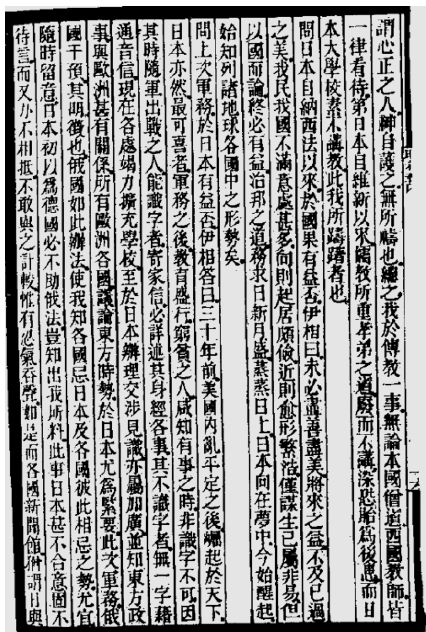 謂心正之人神自護之無所禱也總之我於傳教一事無論本國僧道西國教師皆
一律看待第日本自維新以來儒教所重孝弟之道廢而不講深恐貽為後患而日
本大學校素不講教此我所躊躇者也
問日本自納西法以來於國果有益否伊相曰未必盡善盡美將來之益不及已過
之美我民我國不滿意處甚多向則起居頗儉近則愈形繁滋僅謀生已屬非易但
以國而論終必有益治邦之道務求日新月盛蒸蒸日上日本向在夢中今始醒起
始知列諸地球各國中之形勢矣
問上次軍務於日本有益否伊相答曰三十年前美國內亂平定之後崛起於天下
日本亦然最可喜者軍務之後教育盛行窮賓之人咸知有事之時非識字不可因
其時隨軍出戰之人能識字者寄家信必詳述其身經各事其不識字者無一字藉
通音信現在各處竭力擴充學校至於日本辦理交涉見識亦屬加廣並知東方政
事與歐洲甚有關係所有歐洲各國議論東方時勢於日本尤為緊要此次軍務俄
國干預其明徵也俄國如此辦法使我知各國忌日本及各國彼此相忌之勢尤宜
隨時留意日本初以為德國必不助俄法豈知出我所料此事日本甚不合意固不
待言而又力不相抵不敢與之計較惟有忍氣吞聲如是而各國新聞館猶謂日與